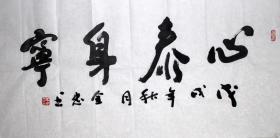 心泰身寧
戊戌年秋月金忠书